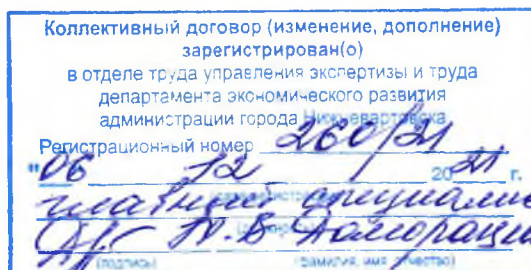 Коллективный договор (изменение, дополнение)
зарегистрирован(о)
в отделе труда управления экспертизы и труда
департамента экономического развития
администрации города Нижневартовска
Регистрационный номер 260/21
"06 12 2021 г.
главный специалис
Т.В
(подпись) (фамилия, имя, отчество)